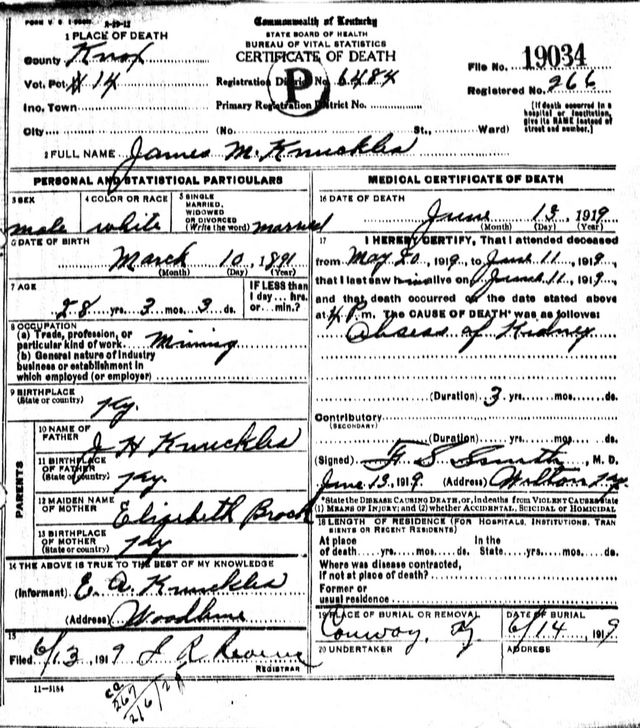 FORM V. S. 1
Commonwealth of Kentucky
STATE BOARD OF HEALTH
BUREAU OF VITAL STATISTICS
CERTIFICATE OF DEATH
1 PLACE OF DEATH
County Knox
Vot. Pct. # 14
Inc. Town
City (No. St., Ward)
Registration District No. 6484
P
Primary Registration District No.
File No. 19034
Registered No. 266
[If death occurred in a
hospital or institution,
give its NAME instead of
street and number.]
2 FULL NAME James M. Knuckles
PERSONAL AND STATISTICAL PARTICULARS
3 SEX
male
4 COLOR OR RACE
white
5 SINGLE
MARRIED,
WIDOWED
OR DIVORCED
(Write the word) married
6 DATE OF BIRTH
March 10, 1891
(Month) (Day) (Year)
7 AGE
28 yrs. 3 mos. 3 ds.
IF LESS than
1 day... hrs.
or ... min.?
8 OCCUPATION
(a) Trade, profession, or
particular kind of work Mining
(b) General nature of industry
business or establishment in
which employed (or employer)
9 BIRTHPLACE
(State or country) Ky.
PARENTS
10 NAME OF
FATHER J H Knuckles
11 BIRTHPLACE
OF FATHER
(State or country) Ky.
12 MAIDEN NAME
OF MOTHER Elizebeth Brock
13 BIRTHPLACE
OF MOTHER
(State or country) Ky
14 THE ABOVE IS TRUE TO THE BEST OF MY KNOWLEDGE
(Informant) E. A. Knuckles
(Address) Woodbine
15
Filed 6/13, 1919 J R
REGISTRAR
11-3184
MEDICAL CERTIFICATE OF DEATH
16 DATE OF DEATH
June 13, 1919
(Month) (Day) (Year)
17 I HEREBY CERTIFY, That I attended deceased
from May 20, 1919, to June 11, 1919,
that I last saw him alive on June 11, 1919,
and that death occurred on the date stated above
at 4 P.m. The CAUSE OF DEATH* was as follows:
Absess of Kidney
(Duration) 3 yrs. mos. ds.
Contributory
(SECONDARY)
(Duration) yrs. mos. ds.
(Signed) F. S. Smith, M. D.
June 13, 1919. (Address) Wilton Ky.
*State the DISEASE CAUSING DEATH, or, in deaths from VIOLENT CAUSES state
(1) MEANS OF INJURY; and (2) whether ACCIDENTAL, SUICIDAL or HOMICIDAL
18 LENGTH OF RESIDENCE (FOR HOSPITALS, INSTITUTIONS, TRAN
SIENTS OR RECENT RESIDENTS)
At place In the
of death yrs. mos. ds. State yrs. mos. ds.
Where was disease contracted,
if not at place of death?
Former or
usual residence
19 PLACE OF BURIAL OR REMOVAL
Conway, Ky
DATE OF BURIAL
6/14, 1919
20 UNDERTAKER
ADDRESS